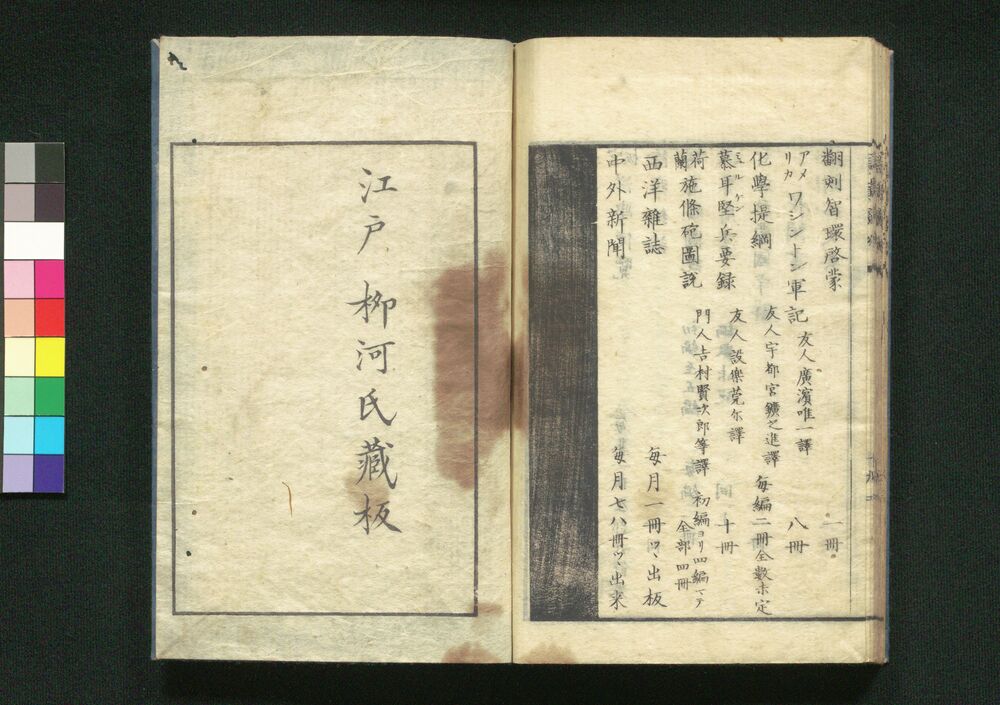 翻刻智環啓蒙 一冊
アメリカ ワシントン軍記 友人廣濱唯一譯 八冊
化學提綱 友人宇都宮鑛之進譯 毎編二冊全數未定
慕耳堅兵要録 友人設樂莞尔譯 十冊
ミルゲン
荷蘭施條砲圖説 門人吉村賢次郎等譯 初編ヨリ四編マテ全部四冊
西洋雜誌 毎月一冊ツヽ出板
中外新聞 毎月七八冊ツヽ出来
江戸 柳河氏藏板